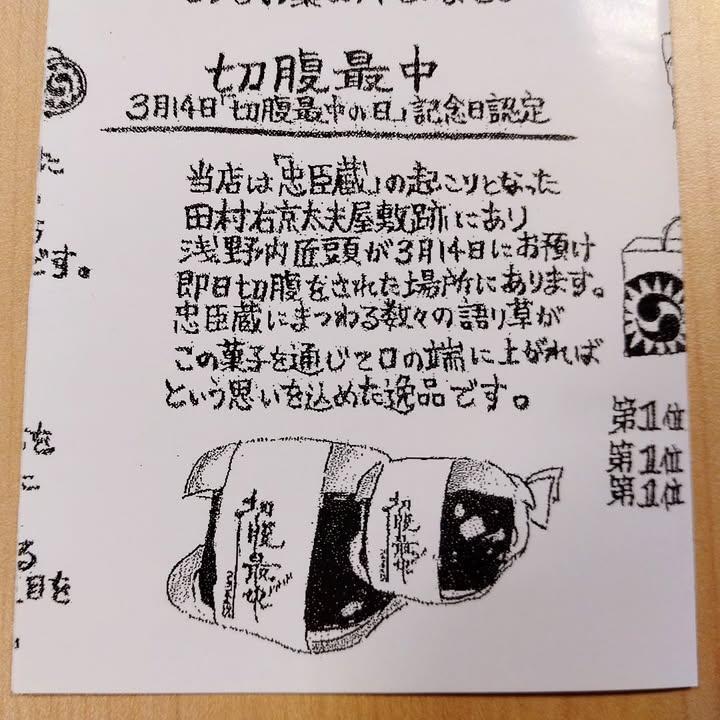 切腹最中
3月14日「切腹最中の日」記念日認定
当店は「忠臣蔵」の起こりとなった
田村右京太夫屋敷跡にあり
浅野内匠頭が3月14日にお預け
即日切腹をされた場所にあります。
忠臣蔵にまつわる数々の語り草が
この菓子を通じて口の端に上がれば
という思いを込めた逸品です。
切腹最中
切腹最中
です。
を
に
る
目を
第1位
第1位
第1位